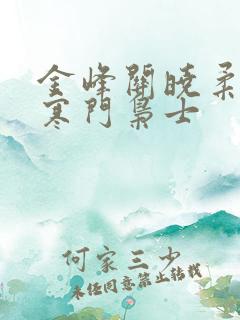 金峰關曉柔
寒門梟士
何家三少
未经同意禁止转载